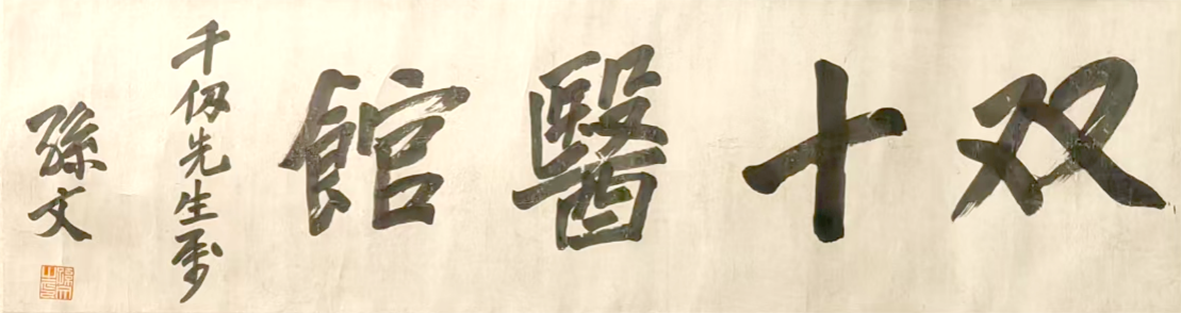 双十醫館
千仞先生属
孫文